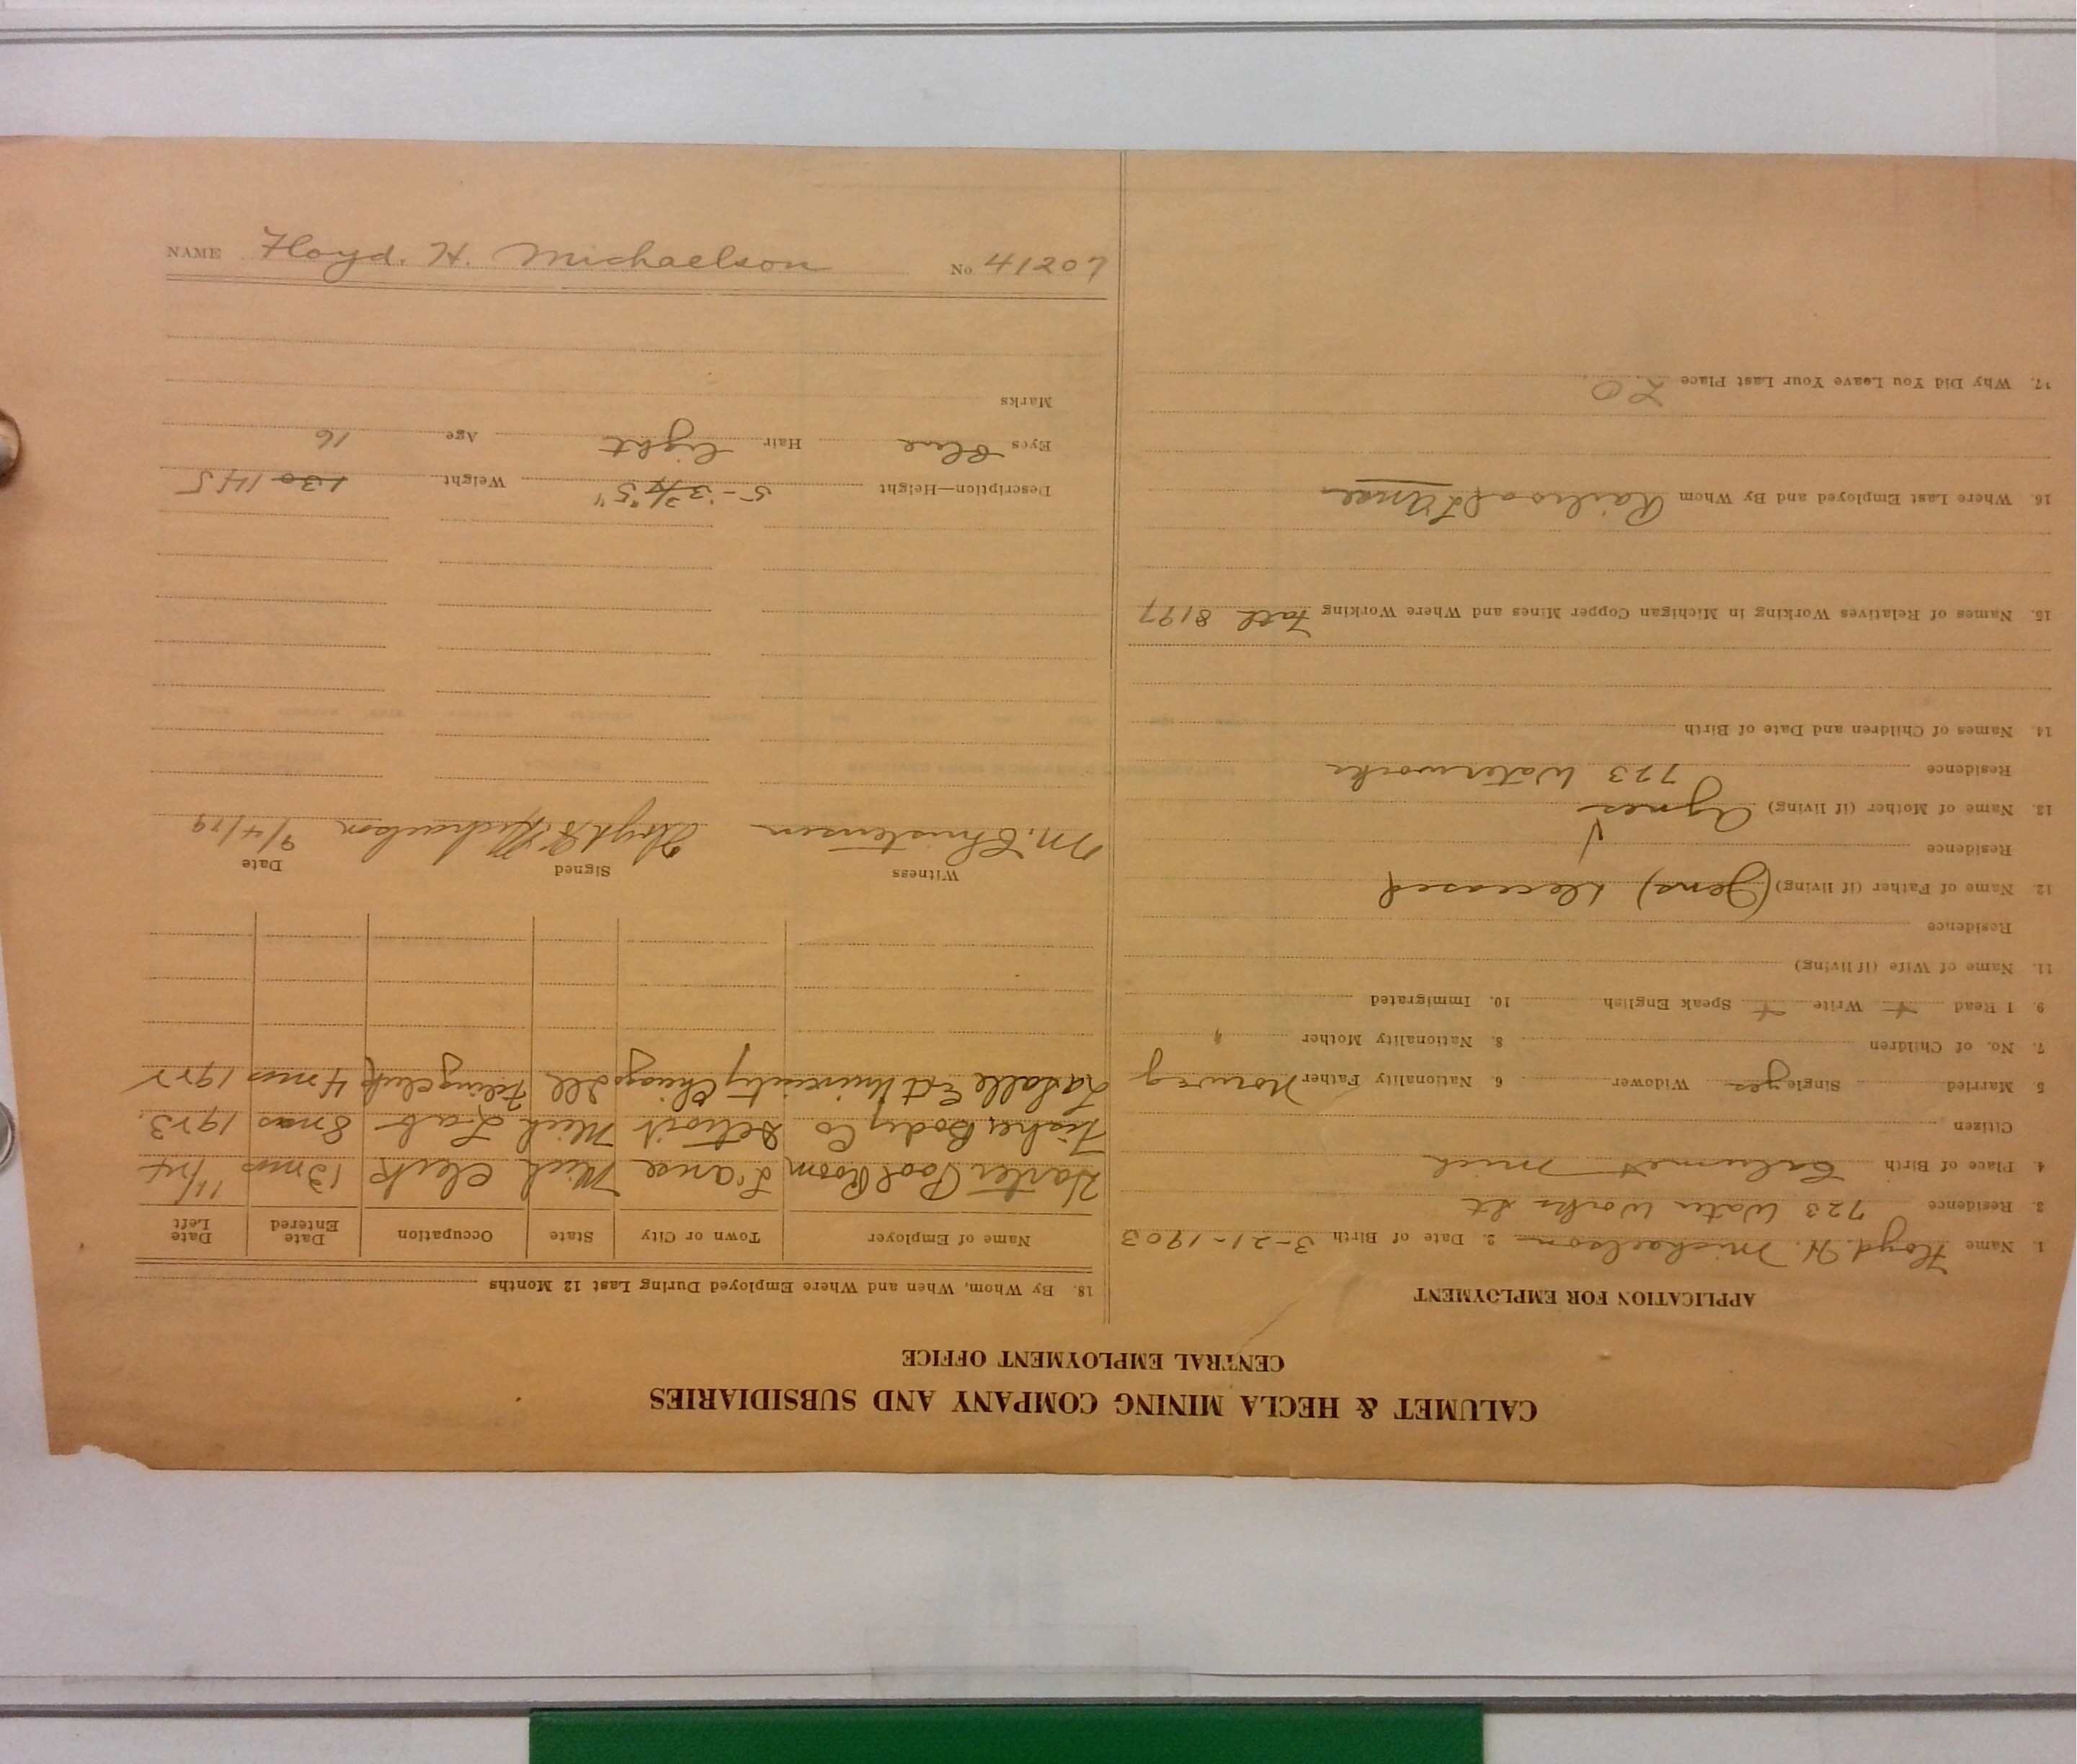 CALUMET & HECLA MINING COMPANY AND SUBSIDIARIES
CENTRAL EMPLOYMENT OFFICE
APPLICATION FOR EMPLOYMENT
1. Name Floyd. H. Michaelson 2. Date of Birth 3-21-1903
3. Residence 723 Water Works St
4. Place of Birth Calumet Mich
Citizen
5 Married Single yes Widower 6. Nationality Father Norweg
7. No. of Children 8. Nationality Mother "
9. I Read + Write + Speak English 10. Immigrated
11. Name of Wife (if living)
Residence
12. Name of Father (if living) (Jens) Deceased
Residence
13. Name of Mother (if living) Agnes
Residence 723 Waterworks
14. Names of Children and Date of Birth
15. Names of Relatives Working in Michigan Copper Mines and Where Working Fath 8197
16. Where Last Employed and By Whom Railroad L'Anse
17. Why Did You Leave Your Last Place LO
18. By Whom, When and Where Employed During Last 12 Months
Name of Employer Town or City State Occupation Date Entered Date Left
Pool Room L'anse Mich Clerk 13 mos 11/24
Fisher Body Co Detroit Mich Lab 8 mos 1923.
Lasalle Ext University Chicago Ill Filing Clerk 4 mos 1922
Witness Signed Date
M. Christensen Floyd H Michaelson 9/4/29
Description—Height 5-3 3/4" 5" Weight 130 145
Eyes Blue Hair light Age 16
Marks
NAME Floyd. H. Michaelson No 41207